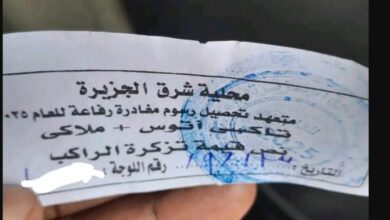 محلية شرق الجزيرة
متعهد تحصيل رسوم مغادرة رفاعة للعام ٢٠٢٥
تاكسي أتوس + ملاكي
نص قيمة تزكرة الراكب
التاريخ : رقم اللوحة